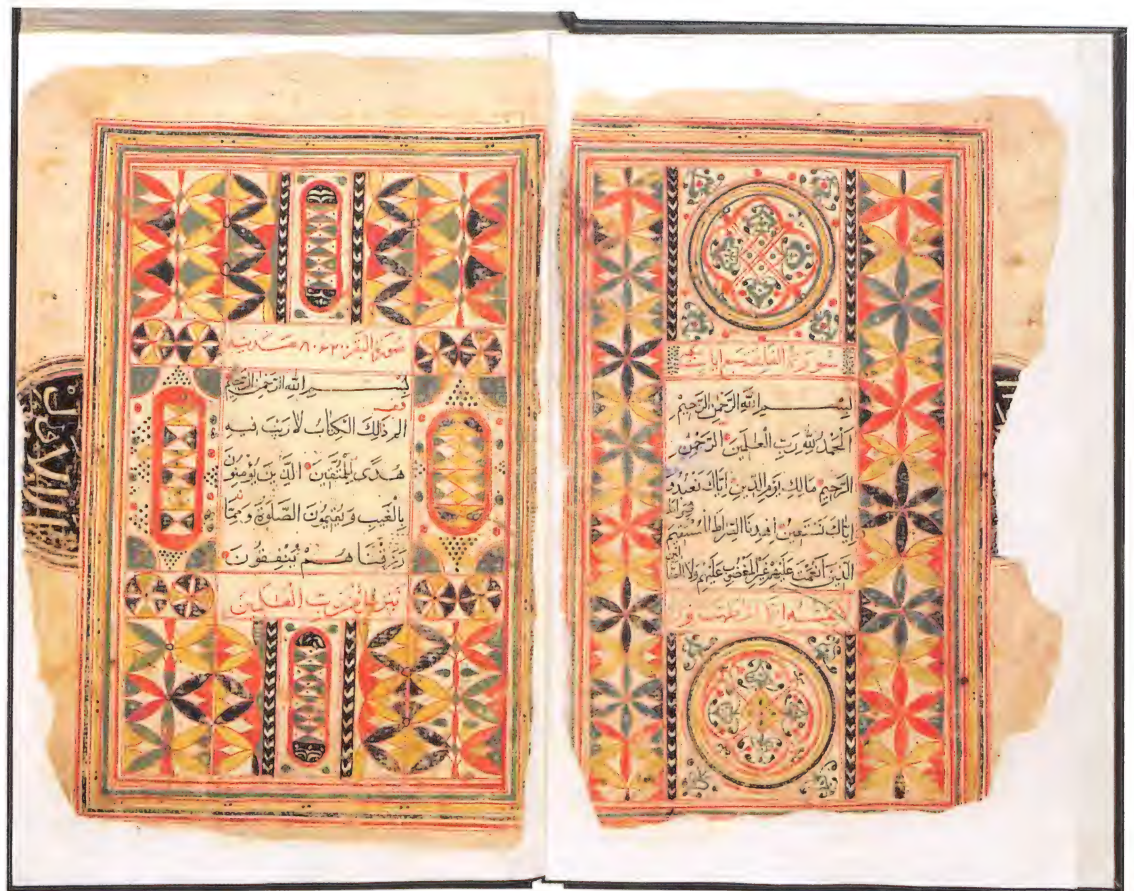 سورة الفاتحة سبع ايات
بسم الله الرحمن الرحيم
الحمد لله رب العلمين الرحمن
الرحيم مالك يوم الدين اياك نعبد و
اياك نستعين اهدنا الصراط المستقيم صراط
الذين أنعمت عليهم غير المغضوب عليهم ولا الضا
لين
لا يمسه الا المطهرون
سورة البقرة
بسم الله الرحمن الرحيم
الم ذلك الكتاب لا ريب فيه
هدى للمتقين الذين يؤمنون
بالغيب ويقيمون الصلوة ومما
رزقناهم ينفقون
تنزيل من رب العلمين